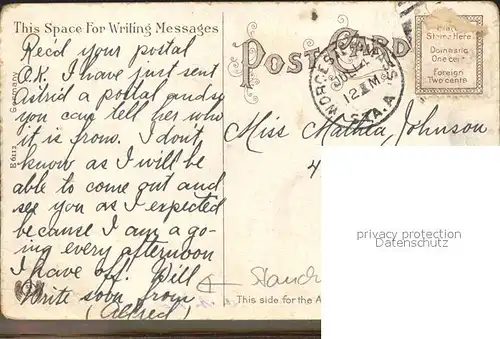 This Space For Writing Messages
Recd your postal
O.K. I have just sent
Astrid a postal and so
you can tell her who
it is from. I don't
know as I will be
able to come out and
see you as I expected
because I am a go-
ing every afternoon
I have off. Will
write soon from
(Alfred)
Germany
E6112
POST CARD
WORCESTER
JUL 4
12 M
STA. A
MASS
Place
Stamp Here
Domestic
One cent
Foreign
Two cents
Miss Mathea Johnson
4
privacy protection
Datenschutz
This side for the A